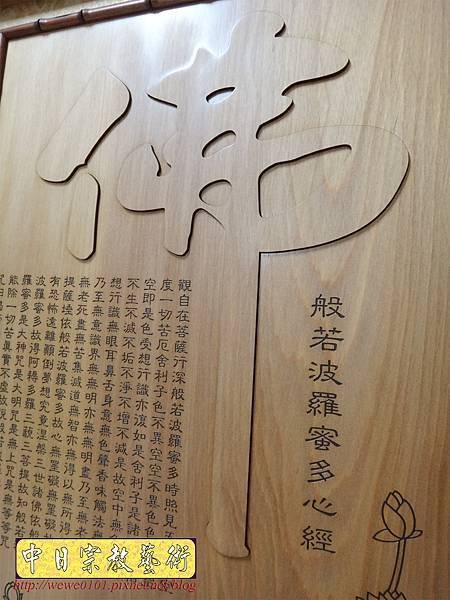 佛
般若波羅蜜多心經
觀自在菩薩行深般若波羅蜜多時照見五
度一切苦厄舍利子色不異空空不異色色
空即是色受想行識亦復如是舍利子是諸
不生不滅不垢不淨不增不減是故空中無色
想行識無眼耳鼻舌身意無色聲香味觸法無
乃至無意識界無無明亦無無明盡乃至無老
無老死盡無苦集滅道無智亦無得以無所得
提薩埵依般若波羅蜜多故心無罣礙無罣礙
有恐怖遠離顛倒夢想究竟涅槃三世諸佛依般
波羅蜜多故得阿耨多羅三藐三菩提故知般若
羅蜜多是大神咒是大明咒是無上咒是無等等咒
能除一切苦真實不虛故說般若
中日宗教藝術
http://wewe0101.pixnet.net/blog